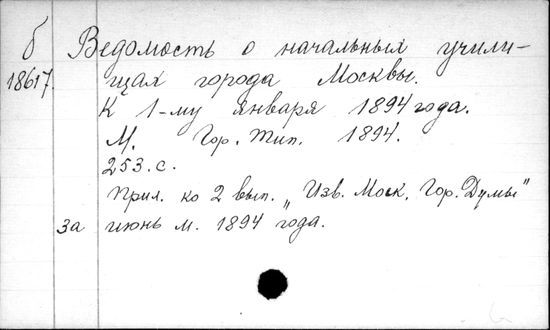 б Ведомость о начальных учили-
18617. щах города Москвы.
К 1-му января 1894 года.
М. Гор. Тип. 1894.
253. с.
Прил. ко 2 вып. „Изв. Моск. Гор. Думы"
за июнь м. 1894 года.